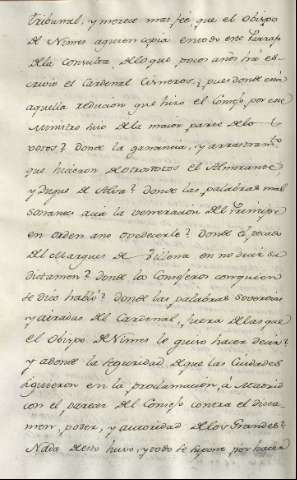 tribunal, y merece mas fee que el Obispo
de Nimes a quien copia en todo este Parraf
dela Consulta delo que pocos años há es-
cribió el Cardenal Cisneros; pues donde està
aquella reducion que hizo el Consejo por este
Ministro hizo dela maior parte delos
votos? donde la ganancia, y arrastram.to
que hicieron de otros votos el Almirante
y Duque de Alva? donde las palabras mal
sonantes acia la veneracion del Principe
en orden a no obedecerle? donde el pecado
del Marques de Villena en no decir su
dictamen? donde los Consejeros con quien
se dice habló? donde las palabras severas
y airadas del Cardenal, fuera delas que
el Obispo de Nimes le quiso hacer decir?
y adonde la seguridad de que las Ciudades
siguieron en la proclamacion, à Madrid
con el parecer del Consejo contra el dicta-
men, poder, y autoridad delos Grandes?
Nada de esto huvo, y todo se supone por hacer